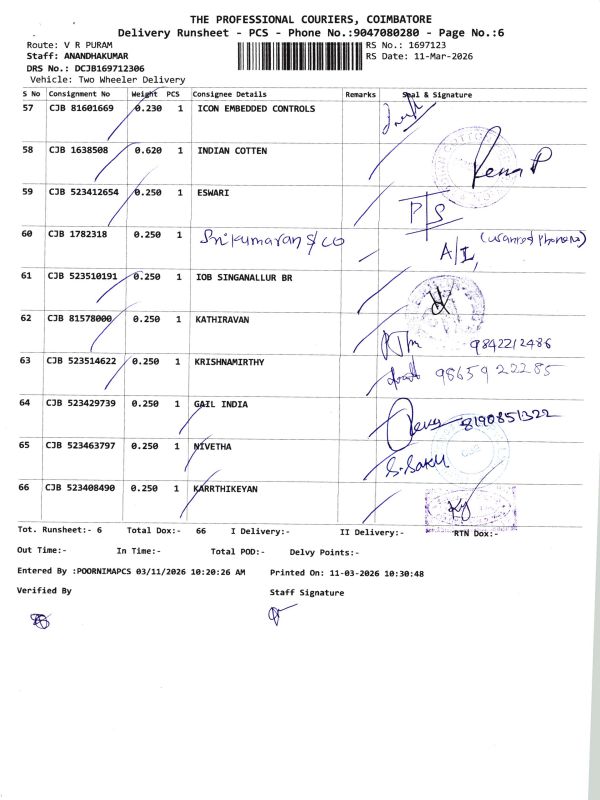 THE PROFESSIONAL COURIERS, COIMBATORE
Delivery Runsheet - PCS - Phone No.:9047080280 - Page No.:6
Route: V R PURAM
RS No.: 1697123
Staff: ANANDHAKUMAR
RS Date: 11-Mar-2026
DRS No.: DCJB169712306
Vehicle: Two Wheeler Delivery
S No Consignment No Weight PCS Consignee Details Remarks Seal & Signature
57 CJB 81601669 0.230 1 ICON EMBEDDED CONTROLS
58 CJB 1638508 0.620 1 INDIAN COTTEN
59 CJB 523412654 0.250 1 ESWARI P/S
60 CJB 1782318 0.250 1 Srikumaran & CO A/L
61 CJB 523510191 0.250 1 IOB SINGANALLUR BR
62 CJB 81578000 0.250 1 KATHIRAVAN 9842212486
63 CJB 523514622 0.250 1 KRISHNAMIRTHY 9865922285
64 CJB 523429739 0.250 1 GAIL INDIA 8190851322
65 CJB 523463797 0.250 1 NIVETHA
66 CJB 523408490 0.250 1 KARRTHIKEYAN
Tot. Runsheet:- 6 Total Dox:- 66 I Delivery:- II Delivery:- RTN Dox:-
Out Time:- In Time:- Total POD:- Delvy Points:-
Entered By :POORNIMAPCS 03/11/2026 10:20:26 AM Printed On: 11-03-2026 10:30:48
Verified By Staff Signature